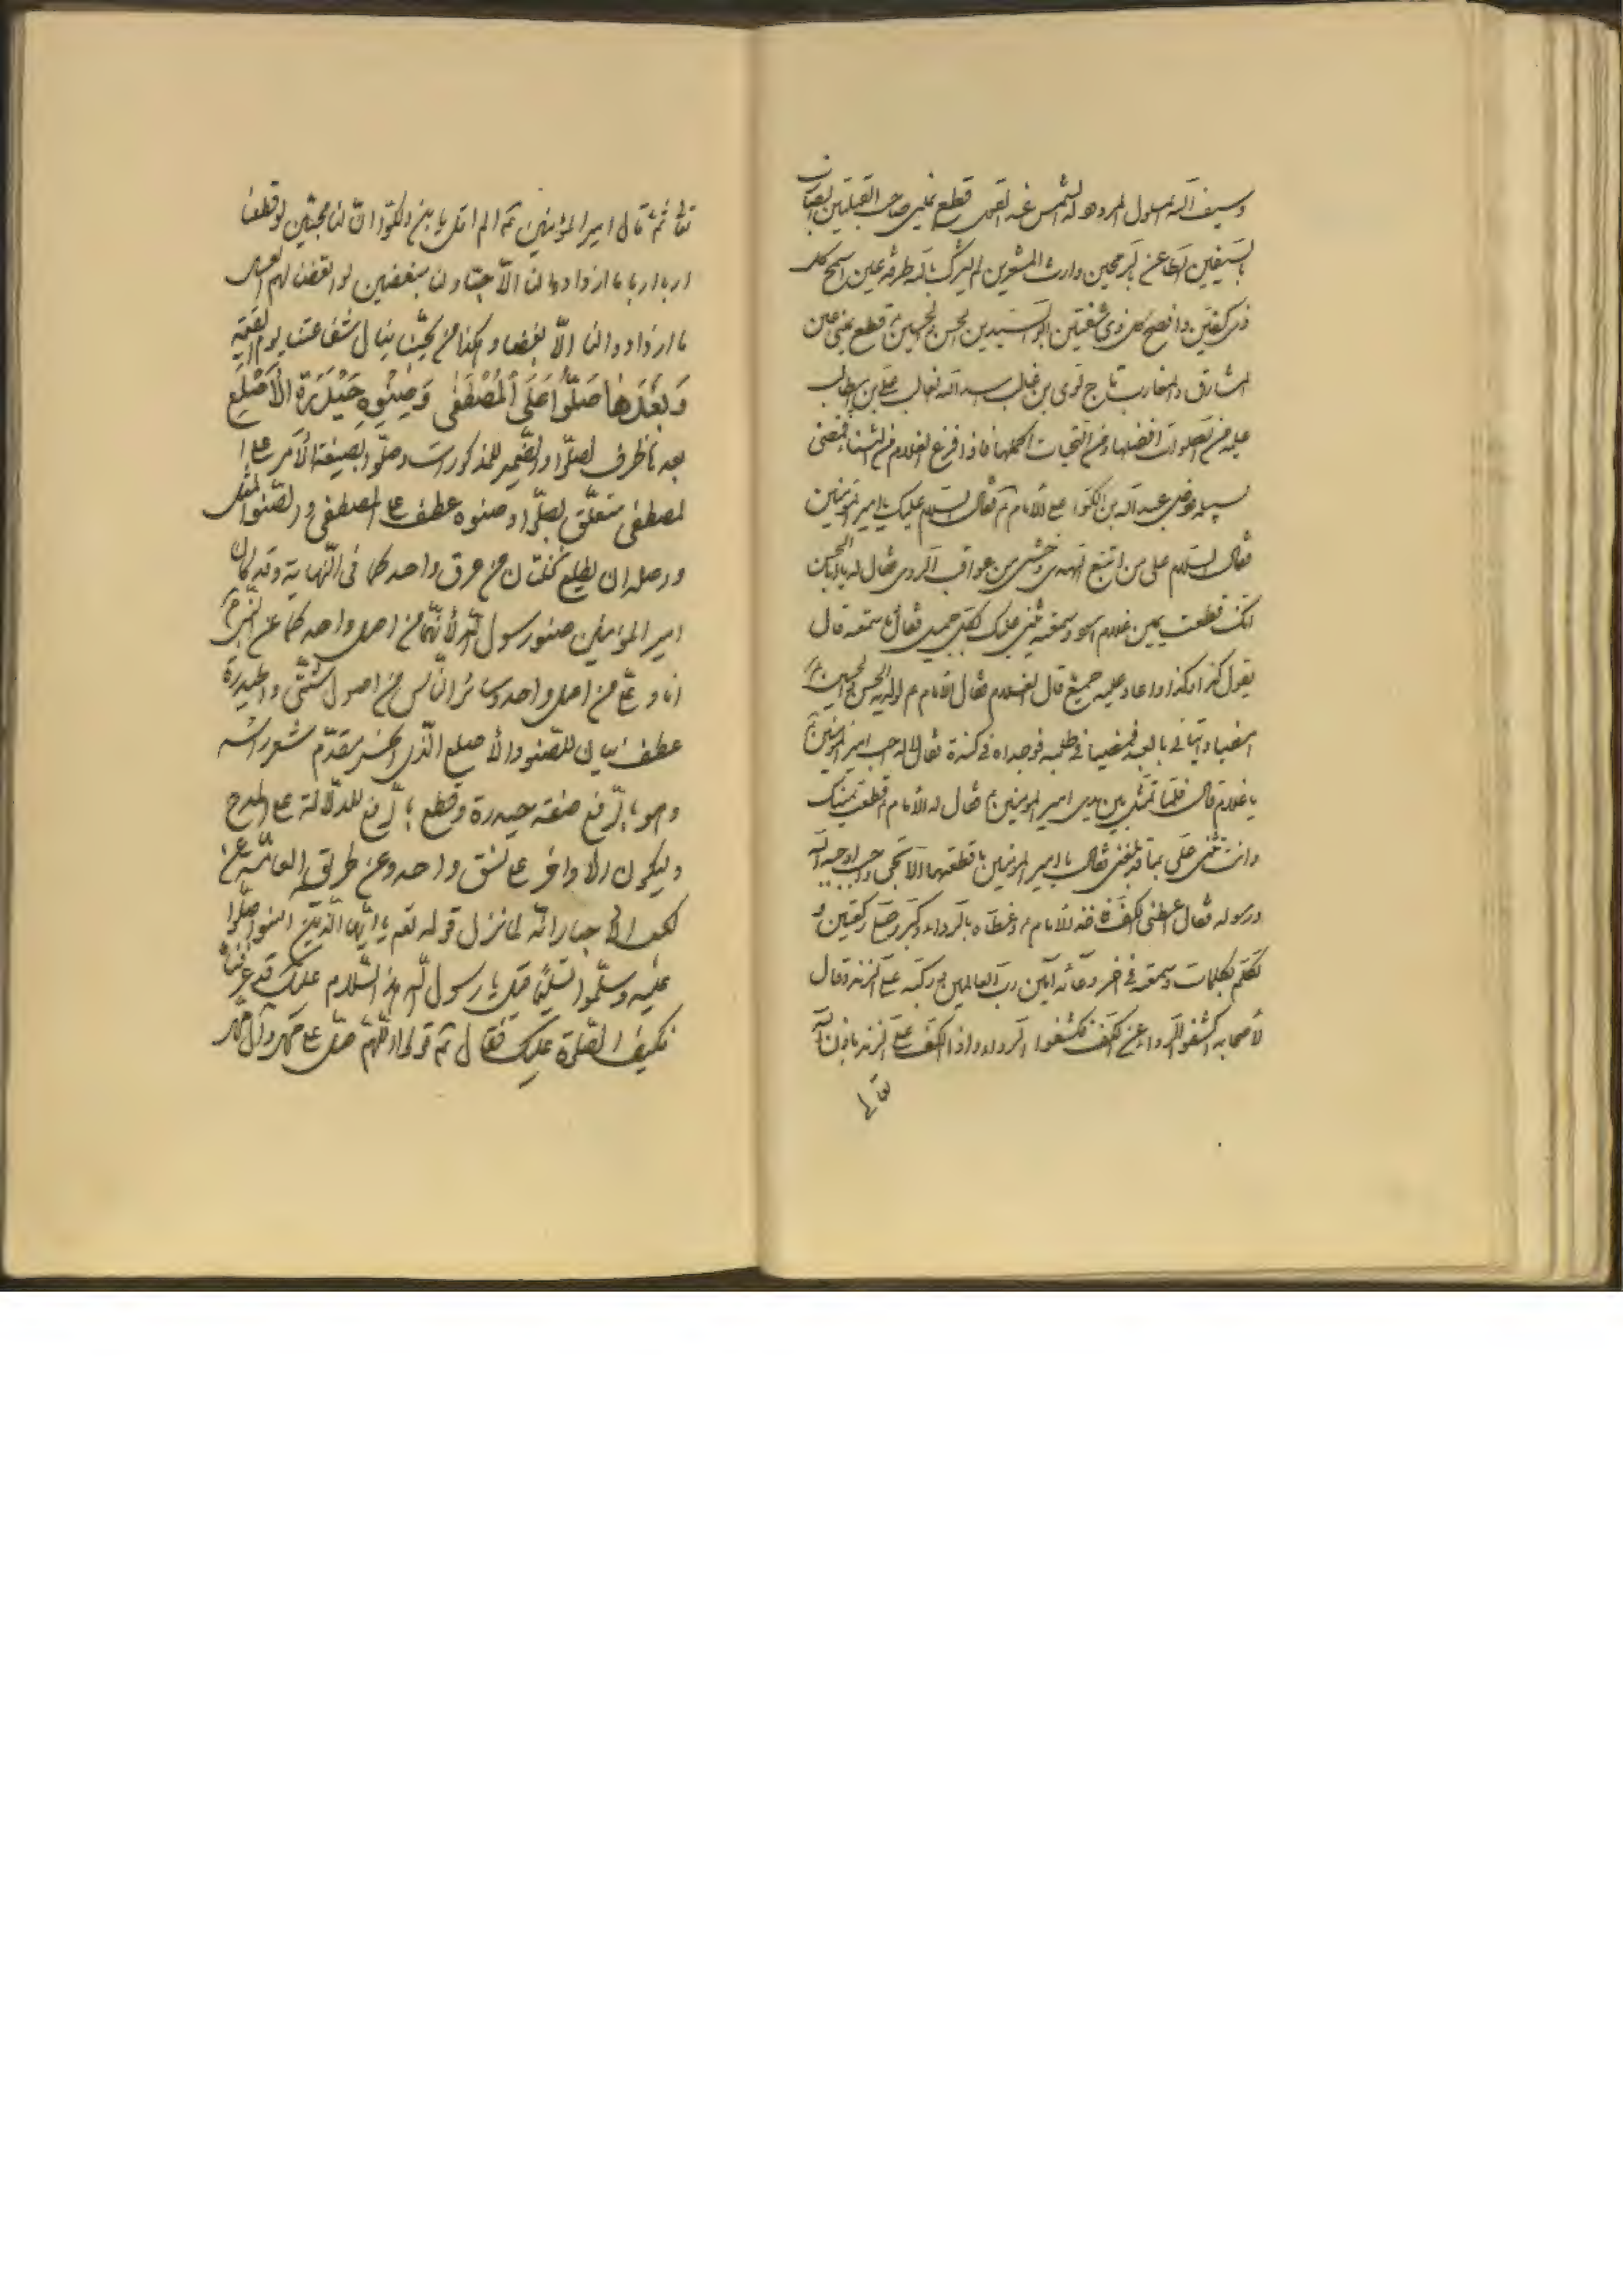 وسيف الله المسلول المردود له الشمس عند القعود قطع يميني صاحب القبلتين الضارب
بالسيفين الطاعن بالرمحين وارث المشعرين لم يشرك بالله طرفة عين اسمح كل
ذي كفين وافصح كل ذي شفتين ابو السيدين الحسن والحسين قطع يميني عين
المشارق والمغارب تاج لوي بن غالب اسد الله الغالب علي بن ابيطالب
عليه من الصلوات افضلها ومن التحيات اكملها فاذا فرغ الغلام من الثناء فمضى
لسبيله ودخل عبد الله بن الكوا على الامام فقال السلام عليك يا امير المؤمنين
فقال السلام على من اتبع الهدى وخشي من عواقب الردى فقال له يا ابا الحسن
انك قطعت يمين غلام اسود وسمعته يثني عليك بكل جميل فقال ما سمعته قال
يقول كذا وكذا واعاد عليه جميع قال الغلام فقال الامام لولديه الحسن والحسين
امضيا واتياني بالعبد فمضيا في طلبه فوجداه في كندة فقالا له اجب امير المؤمنين
يا غلام قال فلما تمثل بين يدي امير المؤمنين قال له الامام قطعت يمينك
وانت تثني علي بما قد بلغني فقال يا امير المؤمنين ما قطعتها الا بحق واجب اوجبه الله
ورسوله فقال اعطني الكف فاخذ الامام وغطاه بالرداء وكبر وصلى ركعتين و
تكلم بكلمات وسمعته في اخر دعائه آمين رب العالمين وركبه على الزند وقال
لاصحابه اكشفوا الرداء عن الكف فكشفوا الرداء واذا الكف على الزند باذن الله
تعالى
تعالى ثم قال امير المؤمنين الم اقل يا بن الكوا ان لنا محبين لو قطعنا
اربا اربا ما ازدادوا لنا الا حبا ولنا مبغضين لو القمناهم العسل
ما ازدادوا لنا الا بغضا وهكذا من يحبنا ينال شفاعتنا يوم القيمة
وَبَعْدَها صَلُّوا عَلَى الْمُصْطَفى وَصِنْوِهِ حَيْدَرَةُ الْأَصْلَعُ
بعدها ظرف لصلوا والضمير للمذكورات وصلوا بصيغة الأمر على ا
لمصطفى متعلق بصلوا وصنوه عطف على المصطفى والصنو المثل
واصله ان يطلع نخلتان من عرق واحد كما في النهاية وقد كان
امير المؤمنين صنو رسول الله لأنهما من اصل واحد كما عن النبي
انا وعلي من اصل واحد وسائر الناس من اصول شتى وحيدرة
عطف بيان للصنو والأصلع الذي انحسر مقدم شعر راسه
وهو بالرفع صفة حيدرة وقطع بالرفع للدلالة على المدح
وليكون الاواخر على نسق واحد وعن طريق العامة عن
كعب الاحبار انه لما نزل قوله تعالى يا ايها الذين امنوا صلوا
عليه وسلموا تسليما قيل يا رسول الله هذا السلام عليك قد عرفناه
فكيف الصلوة عليك فقال قولوا اللهم صل على محمد وآل محمد